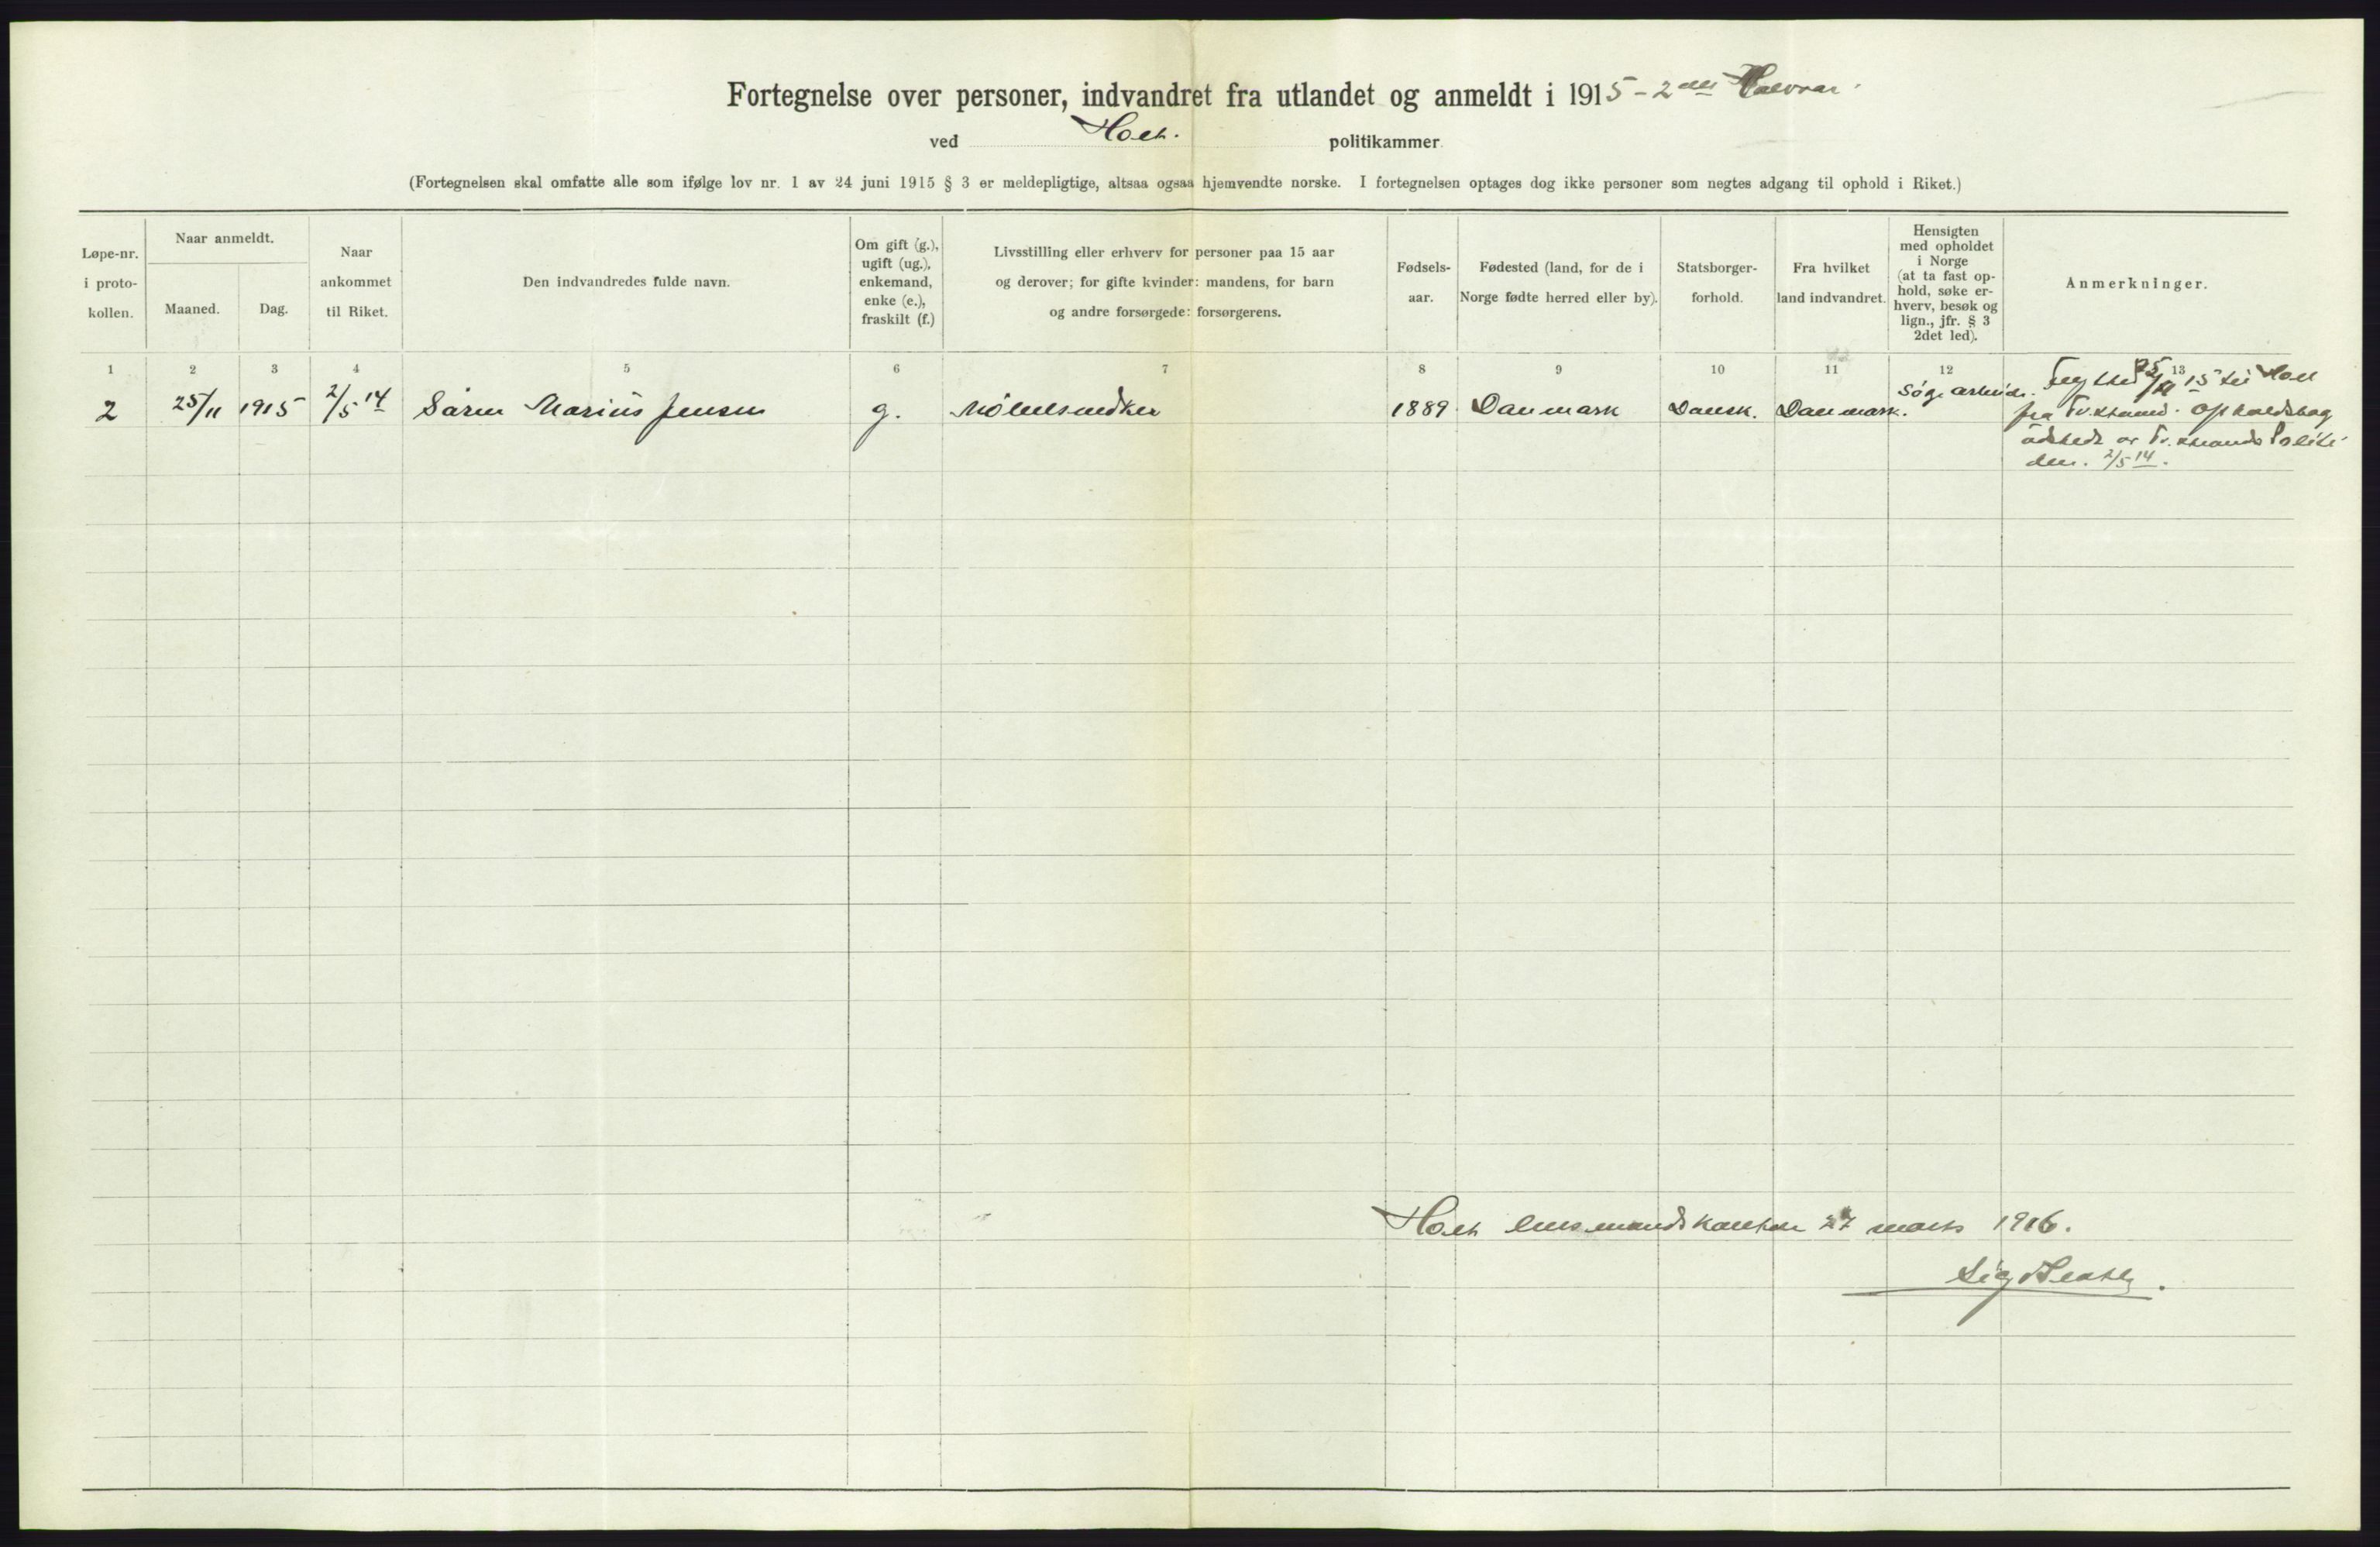 Fortegnelse over personer, indvandret fra utlandet og anmeldt i 1915 - 2det Halvaar.
ved Holt. politikammer
(Fortegnelsen skal omfatte alle som ifølge lov nr. 1 av 24 juni 1915 § 3 er meldepligtige, altsaa ogsaa hjemvendte norske. I fortegnelsen optages dog ikke personer som negtes adgang til ophold i Riket.)
Løpe-nr.
i proto-
kollen.
Naar anmeldt.
Maaned.
Dag.
Naar
ankommet
til Riket.
Den indvandredes fulde navn.
Om gift (g.),
ugift (ug.),
enkemand,
enke (e.),
fraskilt (f.)
Livsstilling eller erhverv for personer paa 15 aar
og derover; for gifte kvinder: mandens, for barn
og andre forsørgede: forsørgerens.
Fødsels-
aar.
Fødested (land, for de i
Norge fødte herred eller by).
Statsborger-
forhold.
Fra hvilket
land indvandret.
Hensigten
med opholdet
i Norge
(at ta fast op-
hold, søke er-
hverv, besøk og
lign., jfr. § 3
2det led).
Anmerkninger.
1 2 3 4 5 6 7 8 9 10 11 12 13
2 25/11 1915 2/5 14 Sørn Marius Jensen g. Möbelsnedker 1889 Danmark Dansk. Danmark. Søge arbeide. Flyttet 25/11 15 til Holt
fra Tv.strand. Opholdsbog
udstedt av Tv.strands Politi
den. 2/5 14.
Holt lensmandskontor 27 marts 1916.
Sig